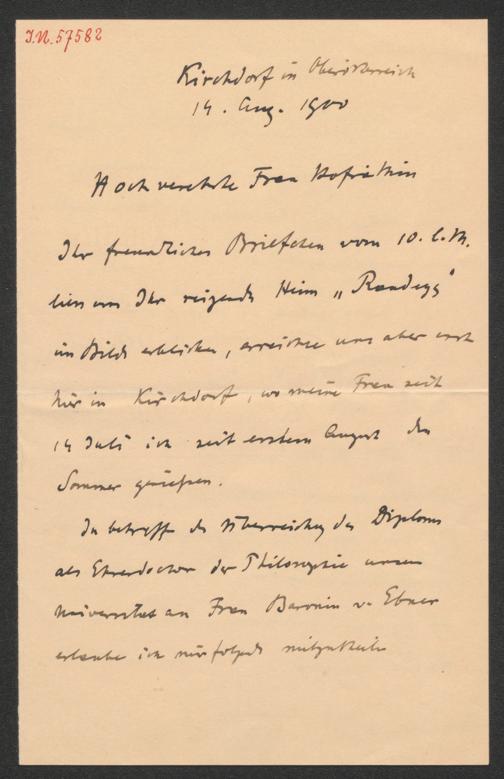 J.N. 57582
Kirchdorf in Oberösterreich
14. Aug. 1900
Hochverehrte Frau Hofräthin
Ihr freundliches Briefchen vom 10. l. M.
liess uns Ihr reizendes Heim „Randegg“
im Bilde erblicken, erreichte uns aber erst
hier in Kirchdorf, wo meine Frau seit
14 Juli ich seit erstem August den
Sommer geniessen.
In betreff der Überreichung des Diploms
als Ehrendoctor der Philosophie unserer
Universitaet an Frau Baronin v. Ebner
erlaube ich mir folgends mitzutheilen